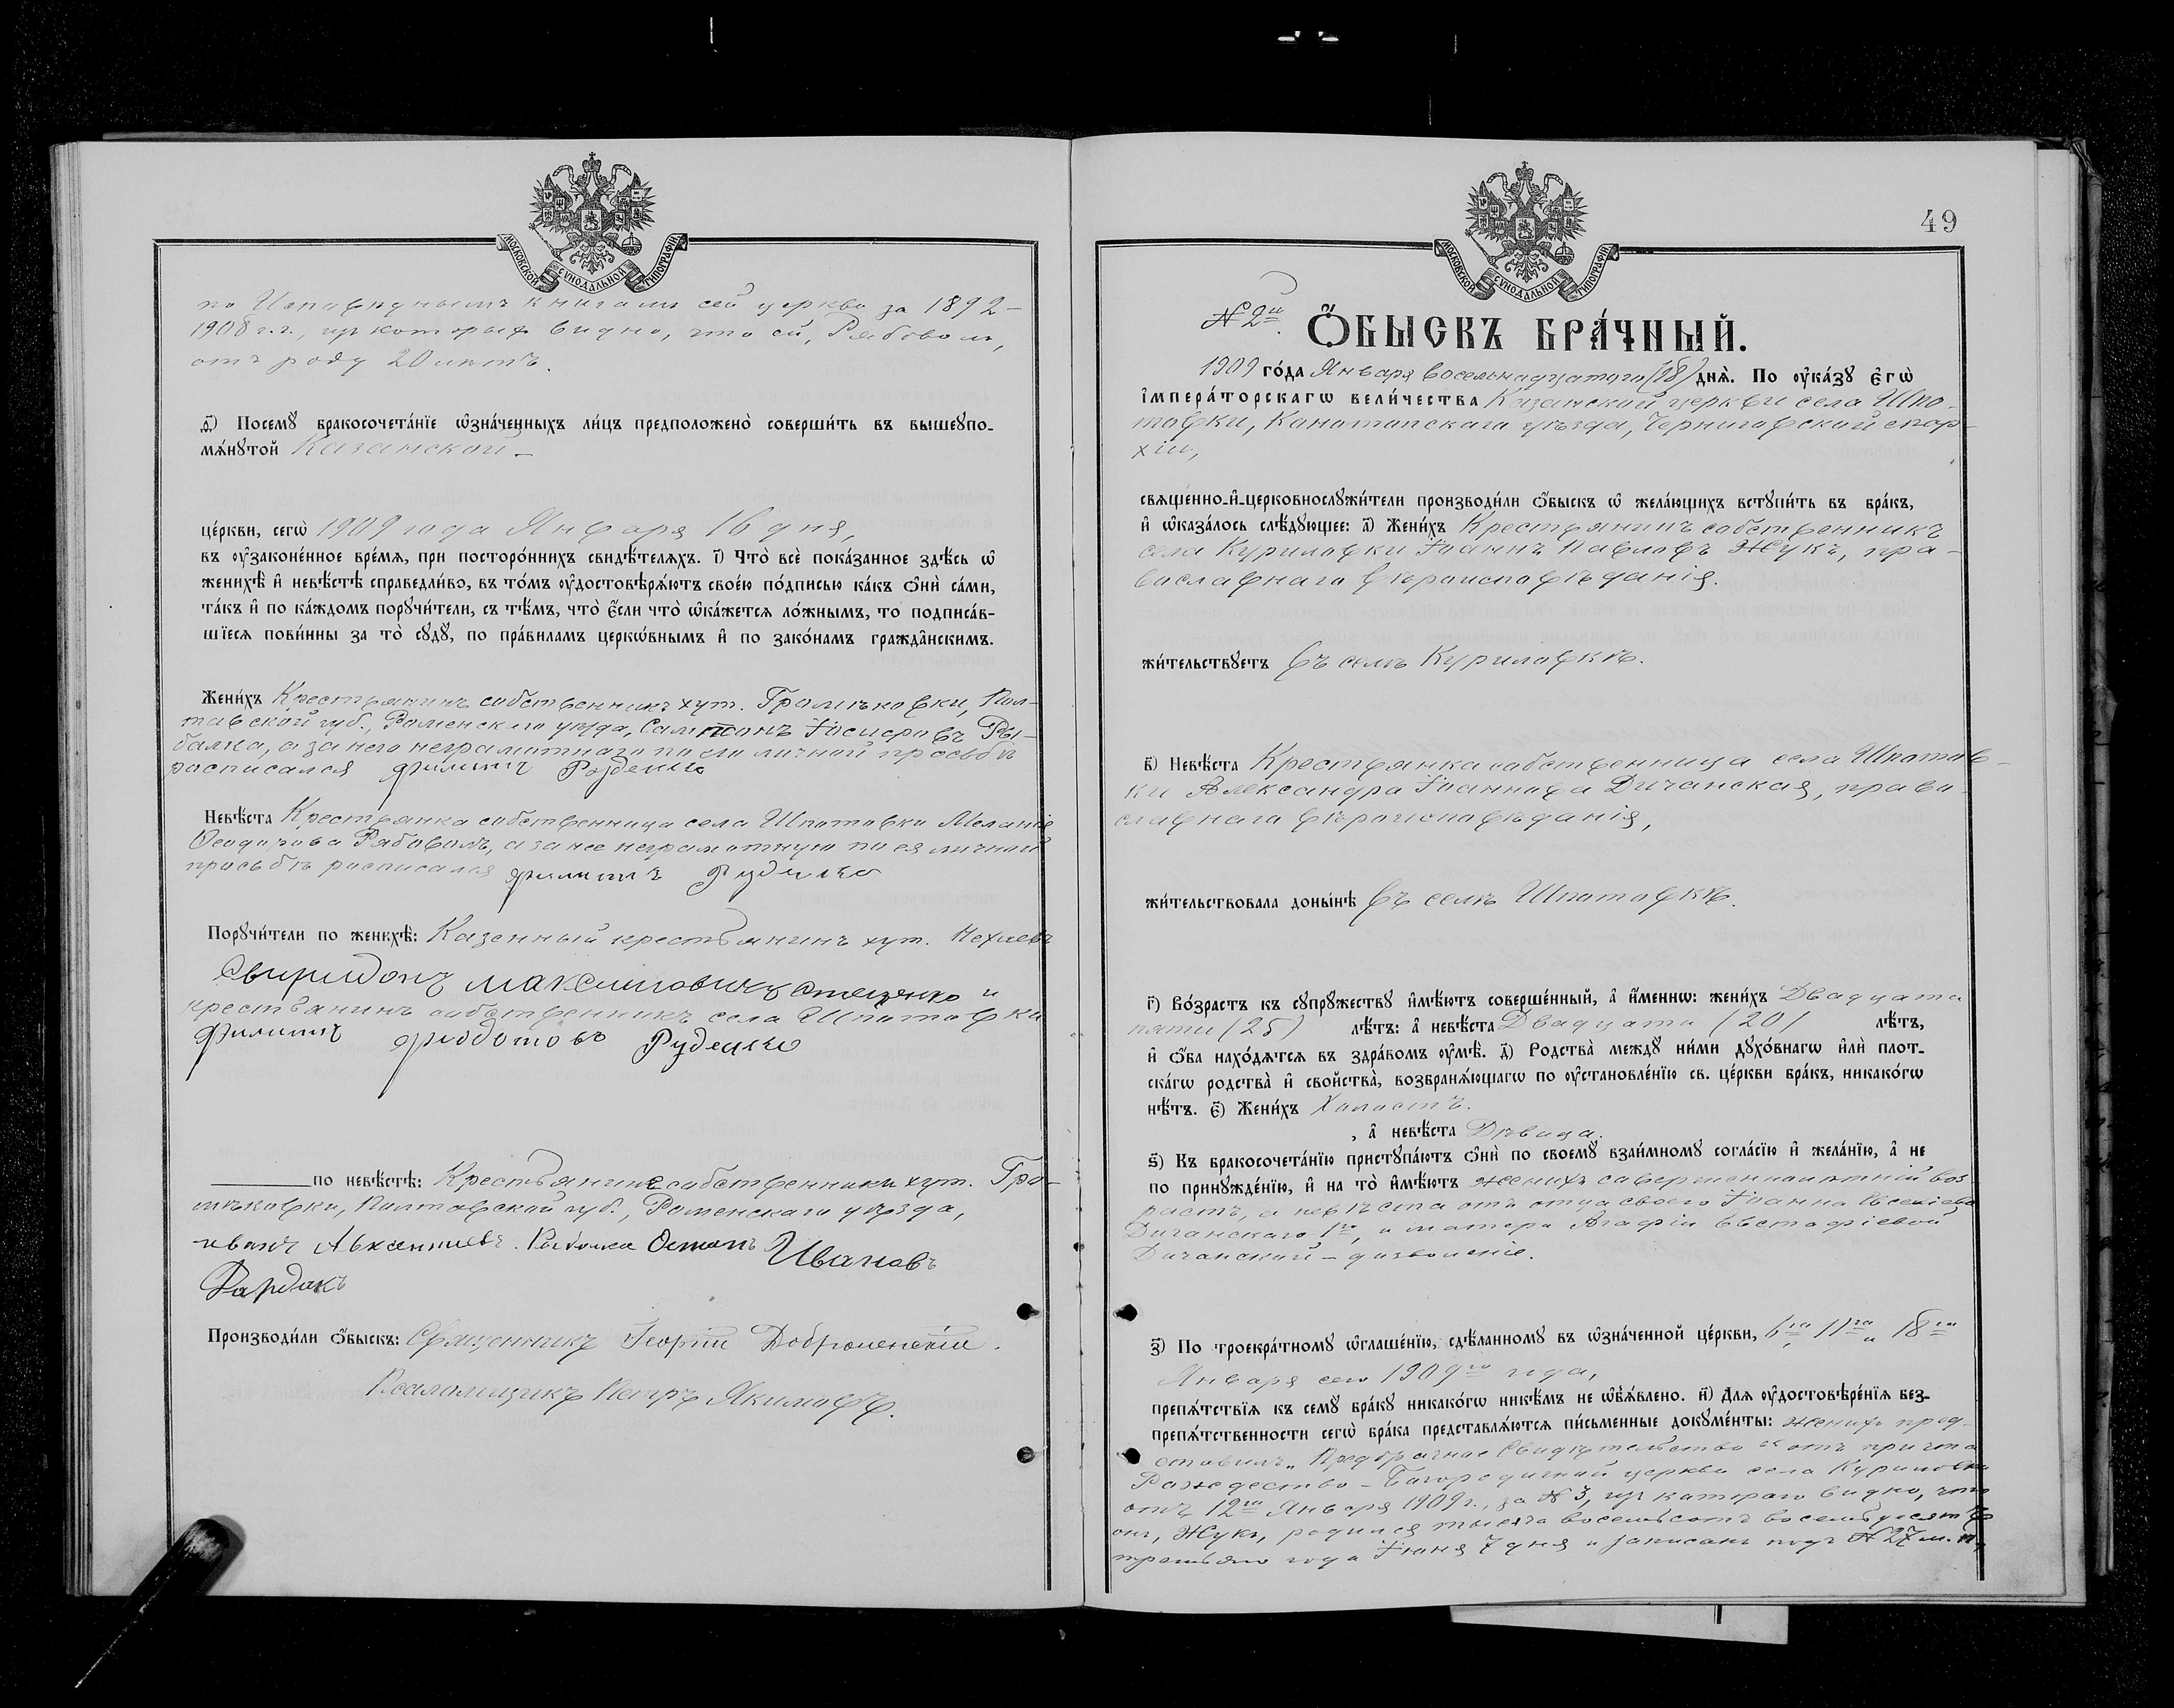 МОСКОВСКОЙ СѴНОДАЛЬНОЙ ТИПОГРАФІИ
по Исповѣднымъ книгамъ сей церкви за 1892–
1908 г.г., изъ которыхъ видно, что ей, Рябоволъ,
отъ роду 20 лѣтъ.
ѳ҃) Посемꙋ̀ бракосочета́нїе ѡ҆зна́ченныхъ ли́цъ предположено̀ соверши́ть въ вышеꙋпо-
мѧ́нꙋтой Казанской –
це́ркви, сегѡ̀ 1909 года Января 16 дня,
въ ᲂу҆законе́нное вре́мѧ, при посторо́ннихъ свидѣ́телѧхъ. і҃) Что̀ всѐ пока́занное здѣ́сь ѡ҆
женихѣ̀ и҆ невѣ́стѣ справедли́во, въ то́мъ ᲂу҆достовѣрѧ́ютъ свое́ю по́дписью ка́къ ѻ҆нѝ са́ми,
та́къ и҆ по ка́ждомъ порꙋчи́тели, съ тѣ́мъ, что̀ є҆́сли что̀ ѡ҆ка́жетсѧ ло́жнымъ, то подписа́в-
шїесѧ пови́нны за то̀ сꙋдꙋ̀, по пра́виламъ церкѡ́внымъ и҆ по зако́намъ гражда̂нскимъ.
Жени́хъ Крестьянинъ собственникъ хут. Громѣковки, Пол-
тавской губ., Роменскаго уѣзда, Сампсонъ Іосифовъ Ры-
балка, а за него неграмотнаго по его личной просьбѣ
росписался Филиппъ Руденко
Невѣ́ста Крестьянка собственница села Шпотовки Меланія
Ѳеодорова Рябоволъ, а за нее неграмотную по ея личной
просьбѣ росписался Филиппъ Руденко
Порꙋчи́тели по женихѣ̀: Казенный крестьянинъ хут. Нехаевъ
Свиридонъ Максимовичъ и
крестьянинъ собственникъ села Шпотовки
Филиппъ Федотовъ Руденко
по невѣ́стѣ: Крестьяне собственники хут. Гро-
мѣковки, Полтавской губ., Роменскаго уѣзда,
иванъ Авксентиевъ Рыбалка Остапъ Ивановъ
Производи́ли ѻ҆́быскъ: Священникъ Георгій
Псаломщикъ Петръ Якимовъ.
49
МОСКОВСКОЙ СѴНОДАЛЬНОЙ ТИПОГРАФІИ
№ 2й.
Ѻ҆́БЫСКЪ БРА́ЧНЫЙ.
1909 го́да Января восемнадцатого (18) днѧ̀. По ᲂу҆ка́зꙋ є҆гѡ̀
і҆мпера́торскагѡ вели́чества Казанской церкви села Шпо-
товки, Конотопскаго уѣзда, Черниговской епар-
хіи,
свѧще́нно-и҆-церковнослꙋжи́тели производи́ли ѻ҆́быскъ ѡ҆ жела́ющихъ встꙋпи́ть въ бра́къ,
и҆ ѡ҆каза́лось слѣ́дꙋющее: а҃) Жени́хъ Крестьянинъ собственникъ
села Куриловки Іоаннъ Павловъ Жукъ, пра-
вославнаго вѣроисповѣданія.
жи́тельствꙋетъ въ селѣ Куриловкѣ.
в҃) Невѣ́ста Крестьянка собственница села Шпотов-
ки Александра Іоаннова Дичанская, право-
славнаго вѣроисповѣданія,
жи́тельствовала доны́нѣ въ селѣ Шпотовкѣ.
г҃) Во́зрастъ къ сꙋпрꙋ́жествꙋ и҆мѣ́ютъ соверше́нный, а҆ и҆́меннѡ: жени́хъ Двадцати
пяти (25) лѣ́тъ: а҆ невѣ́ста Двадцати (20) лѣ́тъ,
и҆ ѻ҆́ба нахо́дѧтсѧ въ здра́вомъ ᲂу҆мѣ̀. д҃) Родства̀ междꙋ̀ ни́ми дꙋхо́внагѡ и҆лѝ плот-
ска́гѡ родства̀ и҆ сво́йства̀, возбранѧ́ющагѡ по ᲂу҆становле́нїю св. це́ркви бра́къ, никако́гѡ
нѣ́тъ. є҃) Жени́хъ Холостъ.
, а҆ невѣ́ста Дѣвица.
ѕ҃) Къ бракосочета́нїю пристꙋпа́ютъ ѻ҆нѝ по своемꙋ̀ взаи́мномꙋ согла́сїю и҆ жела́нїю, а҆ не
по принꙋжде́нїю, и҆ на то̀ и҆мѣ́ютъ женихъ совершеннолѣтній воз
растъ, а невѣста отъ отца своего Іоанна
Дичанскаго 1го, и матери Агафіи Евстафіевой
Дичанской – дозволеніе.
з҃) По троекра́тномꙋ ѡ҆глаше́нїю, сдѣ́ланномꙋ въ ѡ҆зна́ченной це́ркви, 6го, 11го и 18го
Января сего 1909го года,
препѧ́тствїѧ къ семꙋ̀ бра́кꙋ никако́гѡ никѣ́мъ не ѡ҆б̾ѧ́влено. и҃) Длѧ ᲂу҆достовѣре́нїѧ без-
препѧ́тственности сегѡ̀ бра́ка представлѧ́ютсѧ пи́сьменные докꙋме́нты: женихъ пред-
ставилъ „Предбрачное Свидѣтельство“ отъ причта
Рождество-Богородичной церкви села Куриловки
отъ 12го Января 1909 г., за № 3, изъ котораго видно, что
онъ, Жукъ, родился тысяча восемьсотъ восемьдесятъ
третьяго года Іюня 7 дня и записанъ подъ № 27 м. п,